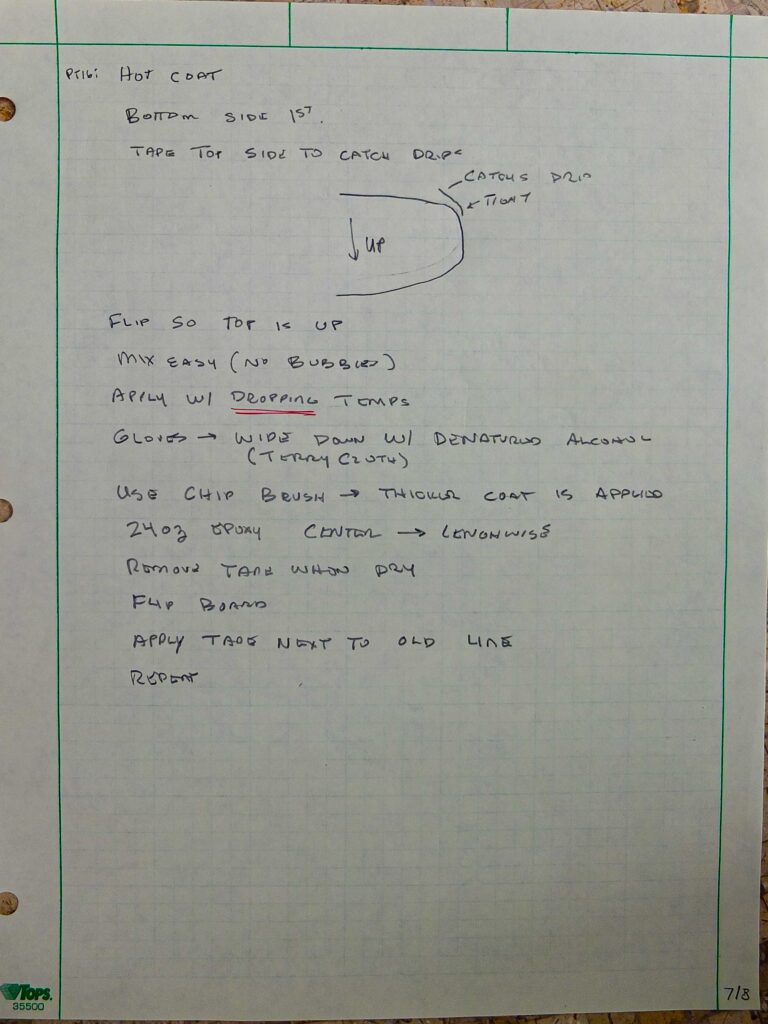 PT16: HOT COAT
BOTTOM SIDE 1ST.
TAPE TOP SIDE TO CATCH DRIPS
CATCHS DRIP
TIGHT
UP
FLIP SO TOP IS UP
MIX EASY (NO BUBBLES)
APPLY W/ DROPPING TEMPS
GLOVES → WIPE DOWN W/ DENATURED ALCOHOL
(TERRY CLOTH)
USE CHIP BRUSH → THICKER COAT IS APPLIED
24oz EPOXY CENTER → LENGHWISE
REMOVE TAPE WHEN DRY
FLIP BOARD
APPLY TAPE NEXT TO OLD LINE
REPEAT
TOPS.
35500
7/8